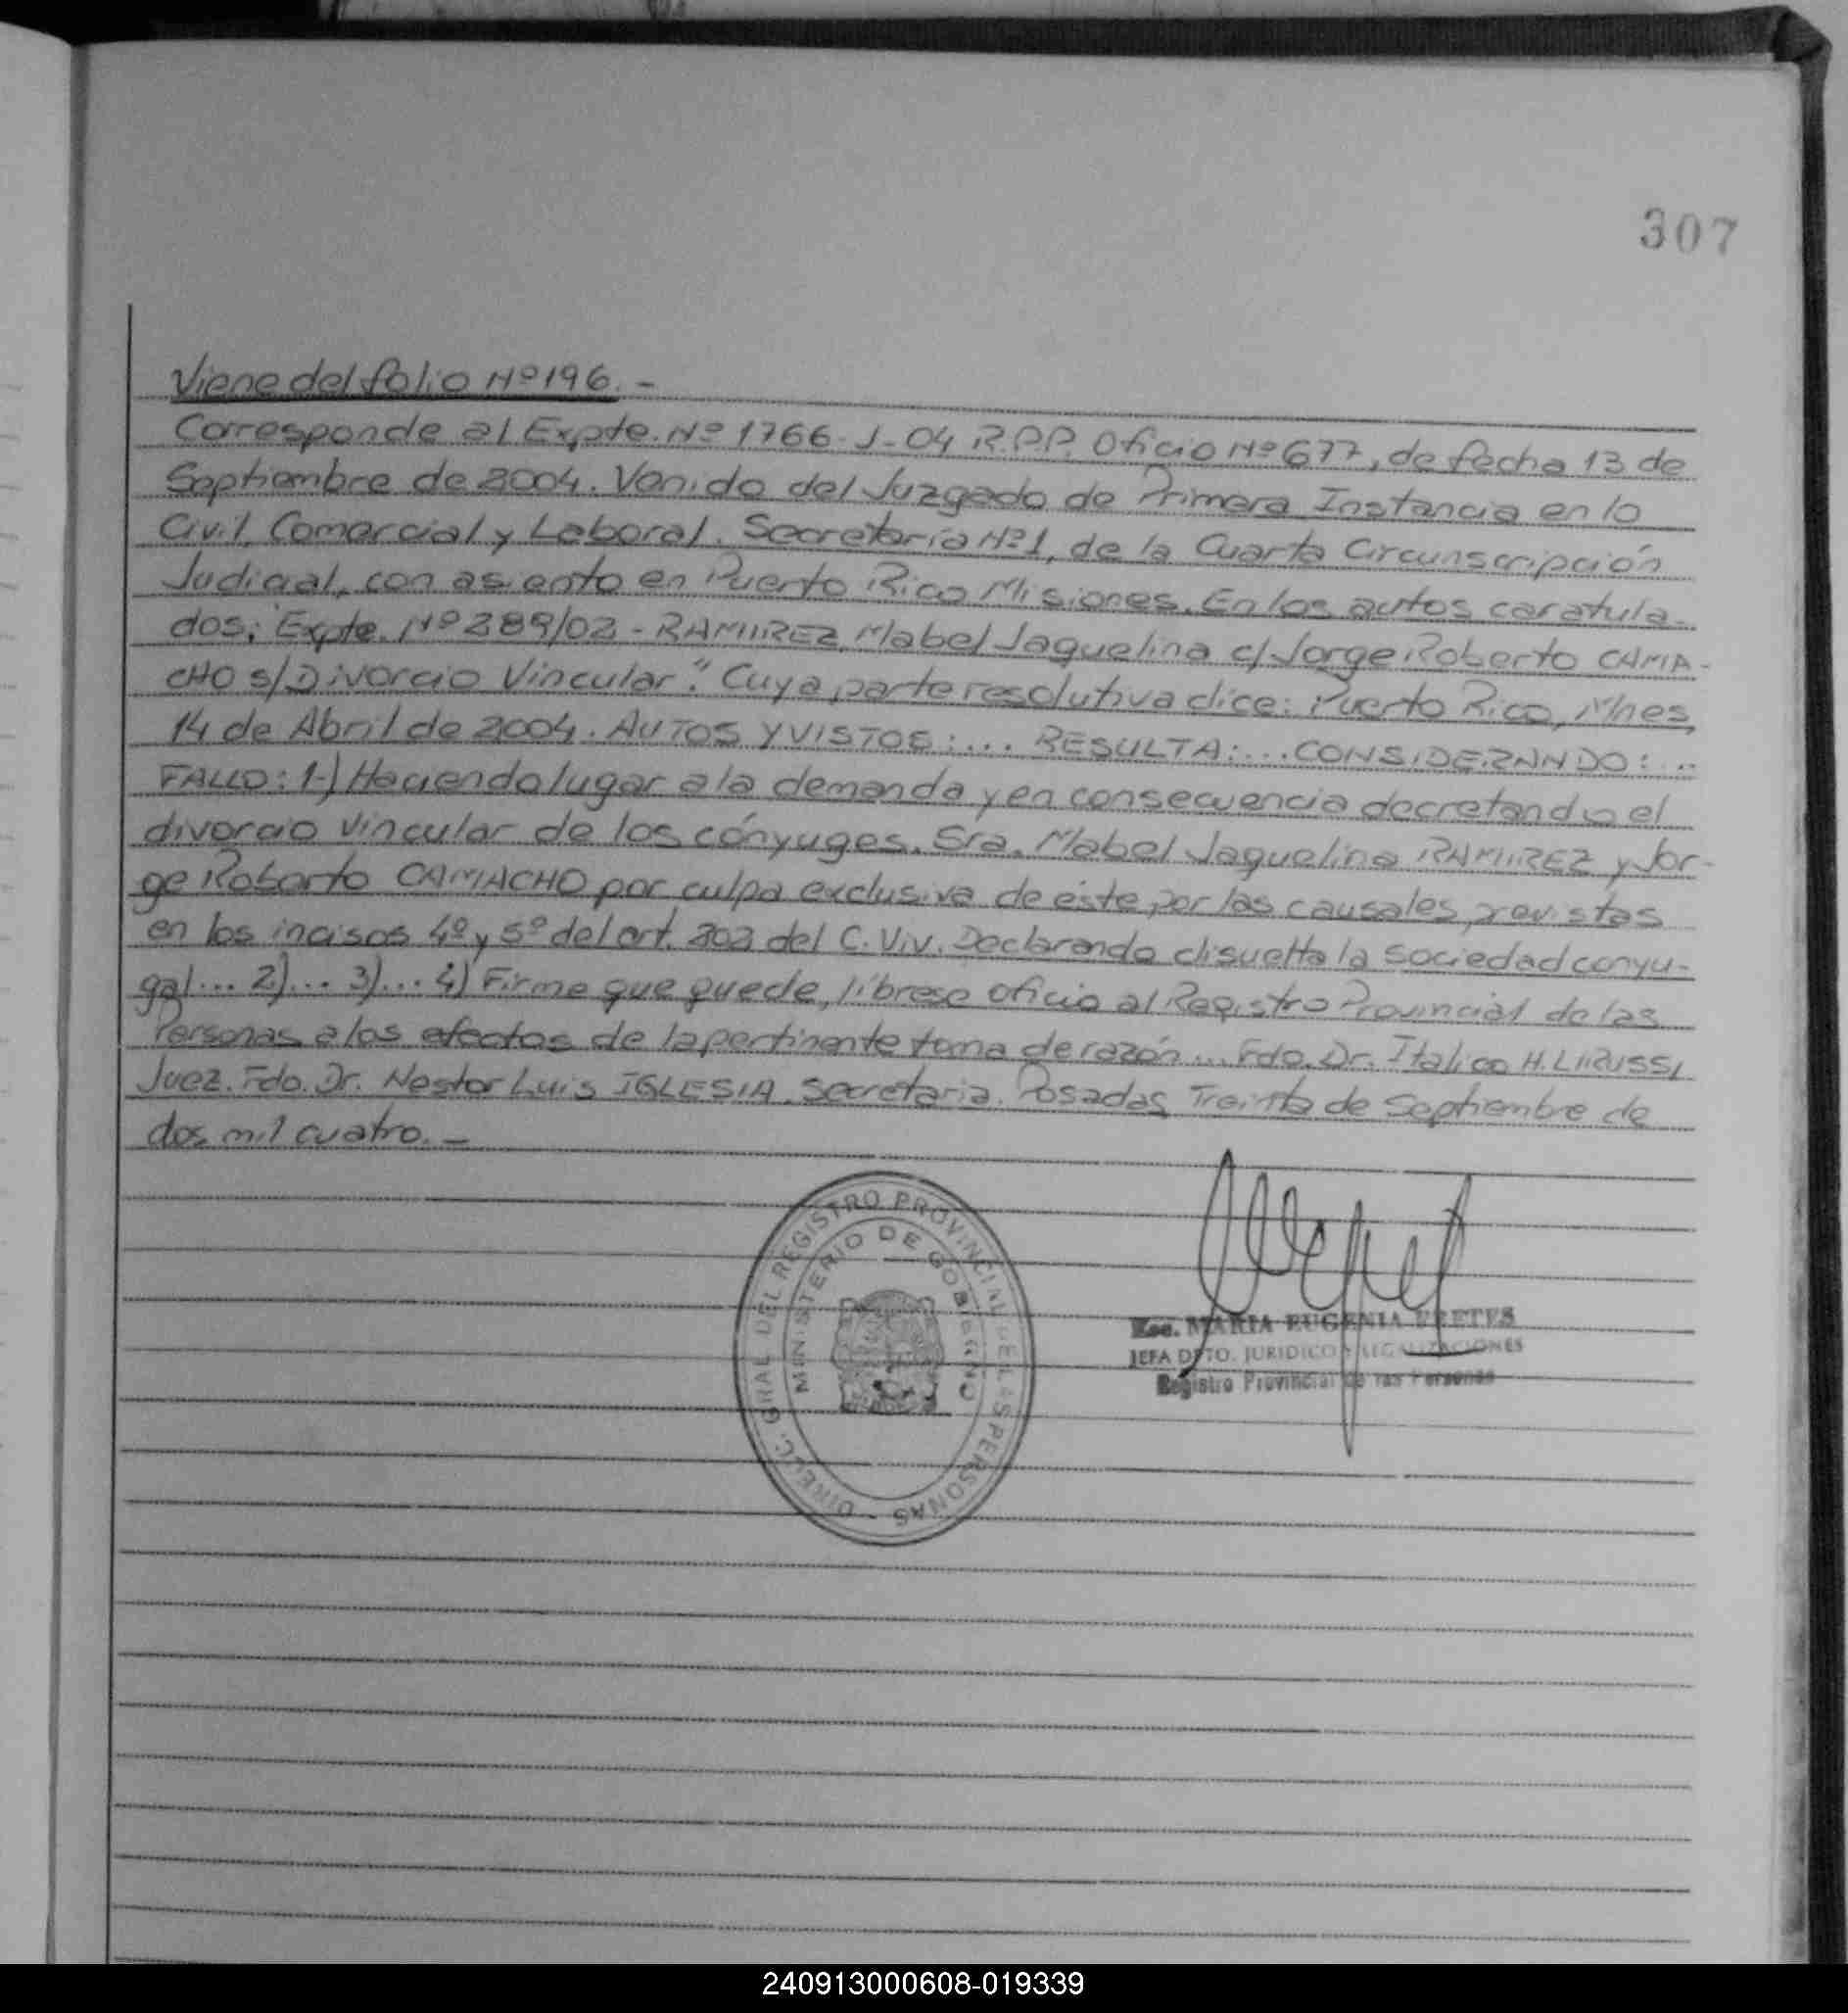 307
Viene del folio Nº 196.-
Corresponde al Expte. Nº 1766-J-04 R.P.P. Oficio Nº 677, de fecha 13 de
Septiembre de 2004. Venido del Juzgado de Primera Instancia en lo
Civil, Comercial y Laboral. Secretaría Nº 1, de la Cuarta Circunscripción
Judicial, con asiento en Puerto Rico Misiones. En los autos caratula-
dos: "Expte. Nº 289/02 - RAMIREZ, Mabel Jaquelina c/ Jorge Roberto CAMA-
CHO s/ Divorcio Vincular". Cuya parte resolutiva dice: Puerto Rico, Mnes,
14 de Abril de 2004. AUTOS Y VISTOS:... RESULTA:... CONSIDERANDO:...
FALLO: 1-) Haciendo lugar a la demanda y en consecuencia decretando el
divorcio vincular de los cónyuges. Sra. Mabel Jaquelina RAMIREZ y Jor-
ge Roberto CAMACHO por culpa exclusiva de éste por las causales previstas
en los incisos 4º y 5º del art. 202 del C. Viv. Declarando disuelta la sociedad conyu-
gal... 2)... 3)... 4) Firme que quede, líbrese oficio al Registro Provincial de las
Personas a los efectos de la pertinente toma de razón... Fdo. Dr. Italico H.
Juez. Fdo. Dr. Nestor Luis IGLESIA. Secretaria. Posadas, Treinta de Septiembre de
dos mil cuatro.-
DIRECC. GRAL DEL REGISTRO PROVINCIAL DE LAS PERSONAS -
MINISTERIO DE GOBIERNO
Esc. MARIA EUGENIA FRETES
JEFA DPTO. JURIDICO Y LEGALIZACIONES
Registro Provincial de las Personas
240913000608-019339